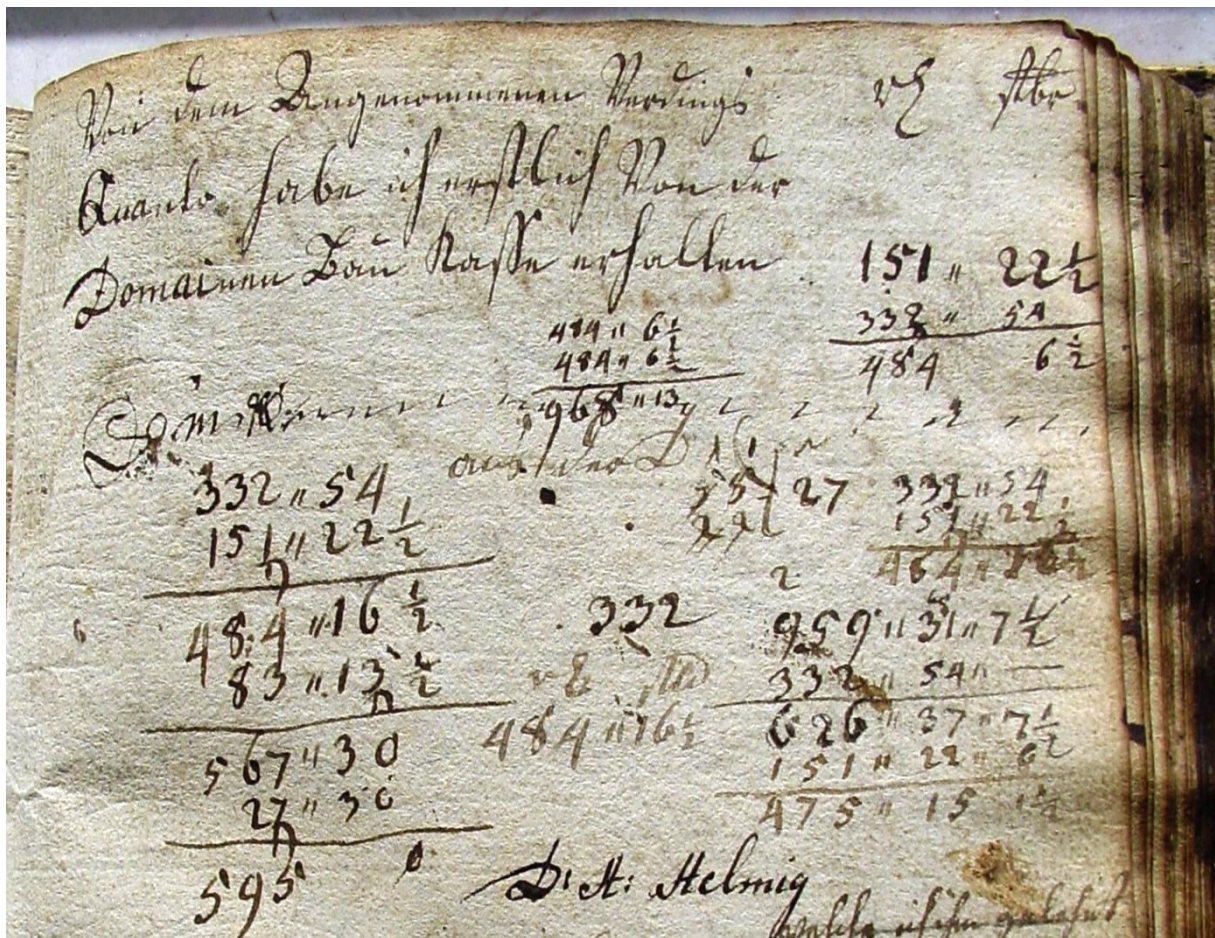 Von dem Angenommenen Verdings rth stbr
Quanto habe ich erstlich Von der
Domainen Bau Kasse erhalten 151 " 22 1/2
332 " 54
484 6 1/2
484 " 6 1/2
484 " 6 1/2
968 " 13
aus der D
332 " 54
151 " 22 1/2
484 " 16 1/2
83 " 13 1/2
567 " 30
27 " 30
595
27
2
332
484 " 16 1/2
332 " 54
151 " 22 1/2
959 " 31 " 7 1/2
332 " 54 " —
626 " 37 " 7 1/2
151 " 22 " 6
475 " 15 1 1/2
D: A: Helmig
welche ich ihm